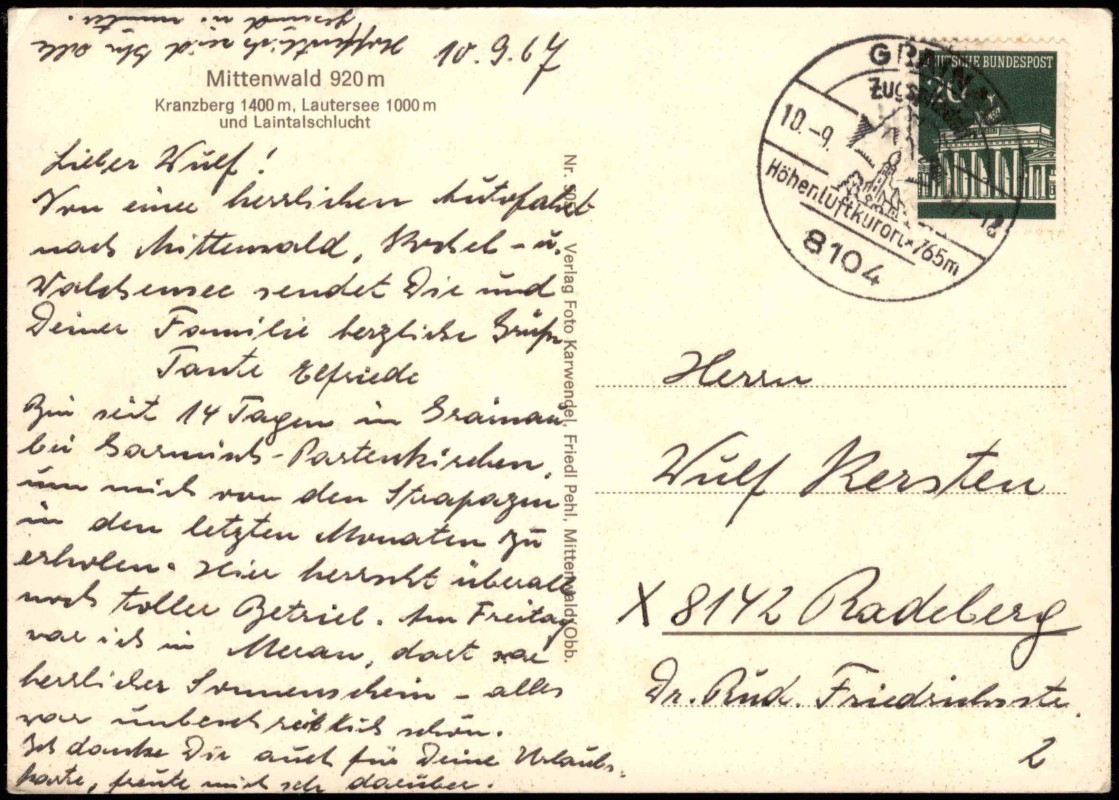 10.9.67
Mittenwald 920 m
Kranzberg 1400 m, Lautersee 1000 m
und Laintalschlucht
Lieber Wulf!
Von einer herrlichen Autofahrt
nach Mittenwald, Kochel- u.
Walchensee sendet Dir und
Deiner Familie herzliche Grüße
Tante Elfriede
Bin seit 14 Tagen in Grainau
bei Garmisch-Partenkirchen,
um mich von den Strapazen
in den letzten Monaten zu
erholen. Hier herrscht überall
noch toller Betrieb. Am Freitag
war ich in Meran, dort war
herrlicher Sonnenschein - alles
war unbeschreiblich schön.
Ich danke Dir auch für Deine Urlaubs-
karte, freute mich sehr darüber.
Hoffentlich seid Ihr alle
gesund u. munter.
Nr.
Verlag Foto Karwendel, Friedl Pehl, Mittenwald/Obb.
DEUTSCHE BUNDESPOST
20
GRAIN
10.-9.
-18
Höhenluftkurort 765m
8104
Herrn
Wulf Kersten
X 8142 Radeberg
Dr. Rud. Friedrichstr.
2